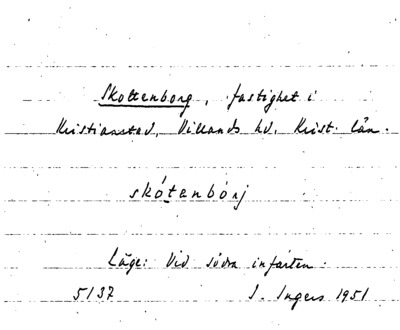 Skottenborg, fastighet i
Kristianstad, Villands hd, Krist. län.
skótenbórj
Läge: Vid södra infarten.
5137 I. Ingers 1951